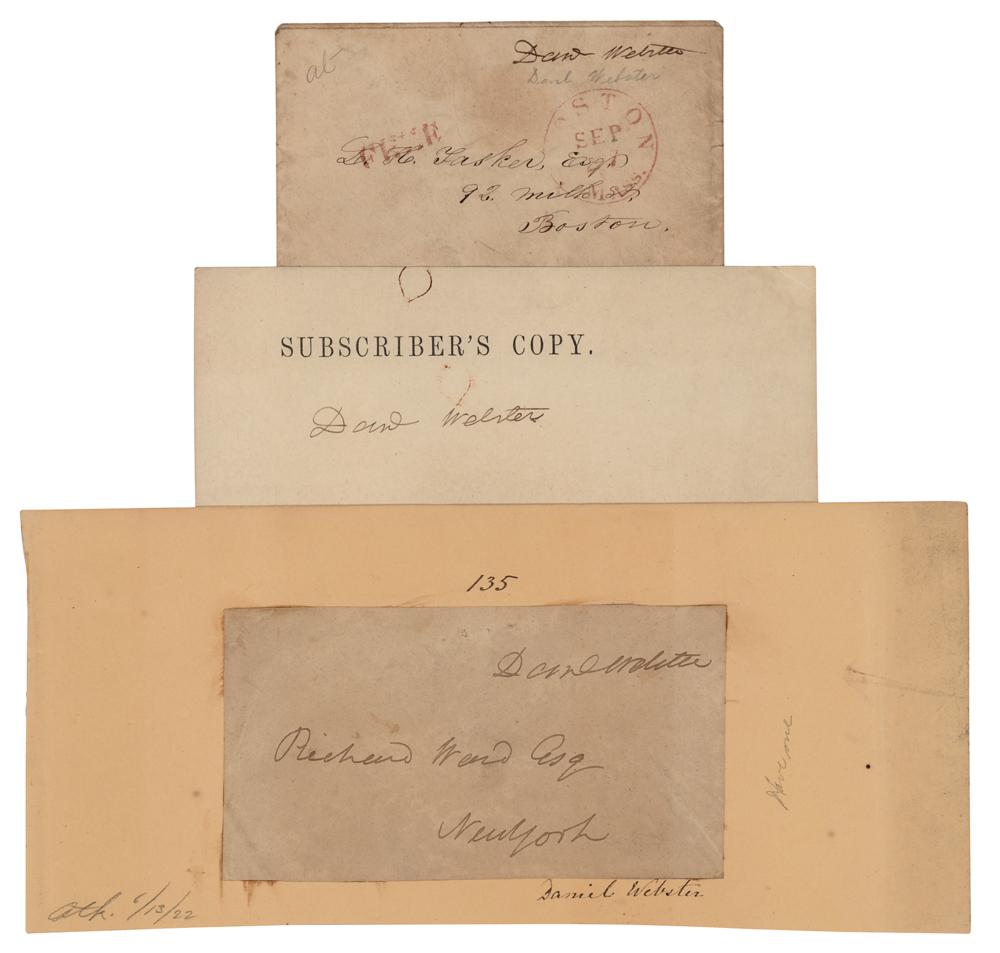 ab
Danl Webster
Danl Webster
FREE
BOSTON
SEP
Mass.
L. R. Tasker, Esqr
92. Milk St.
Boston.
SUBSCRIBER'S COPY.
Danl Webster
135
Danl Webster
Richard Ward Esq
New York
Have one
Daniel Webster
6/13/22